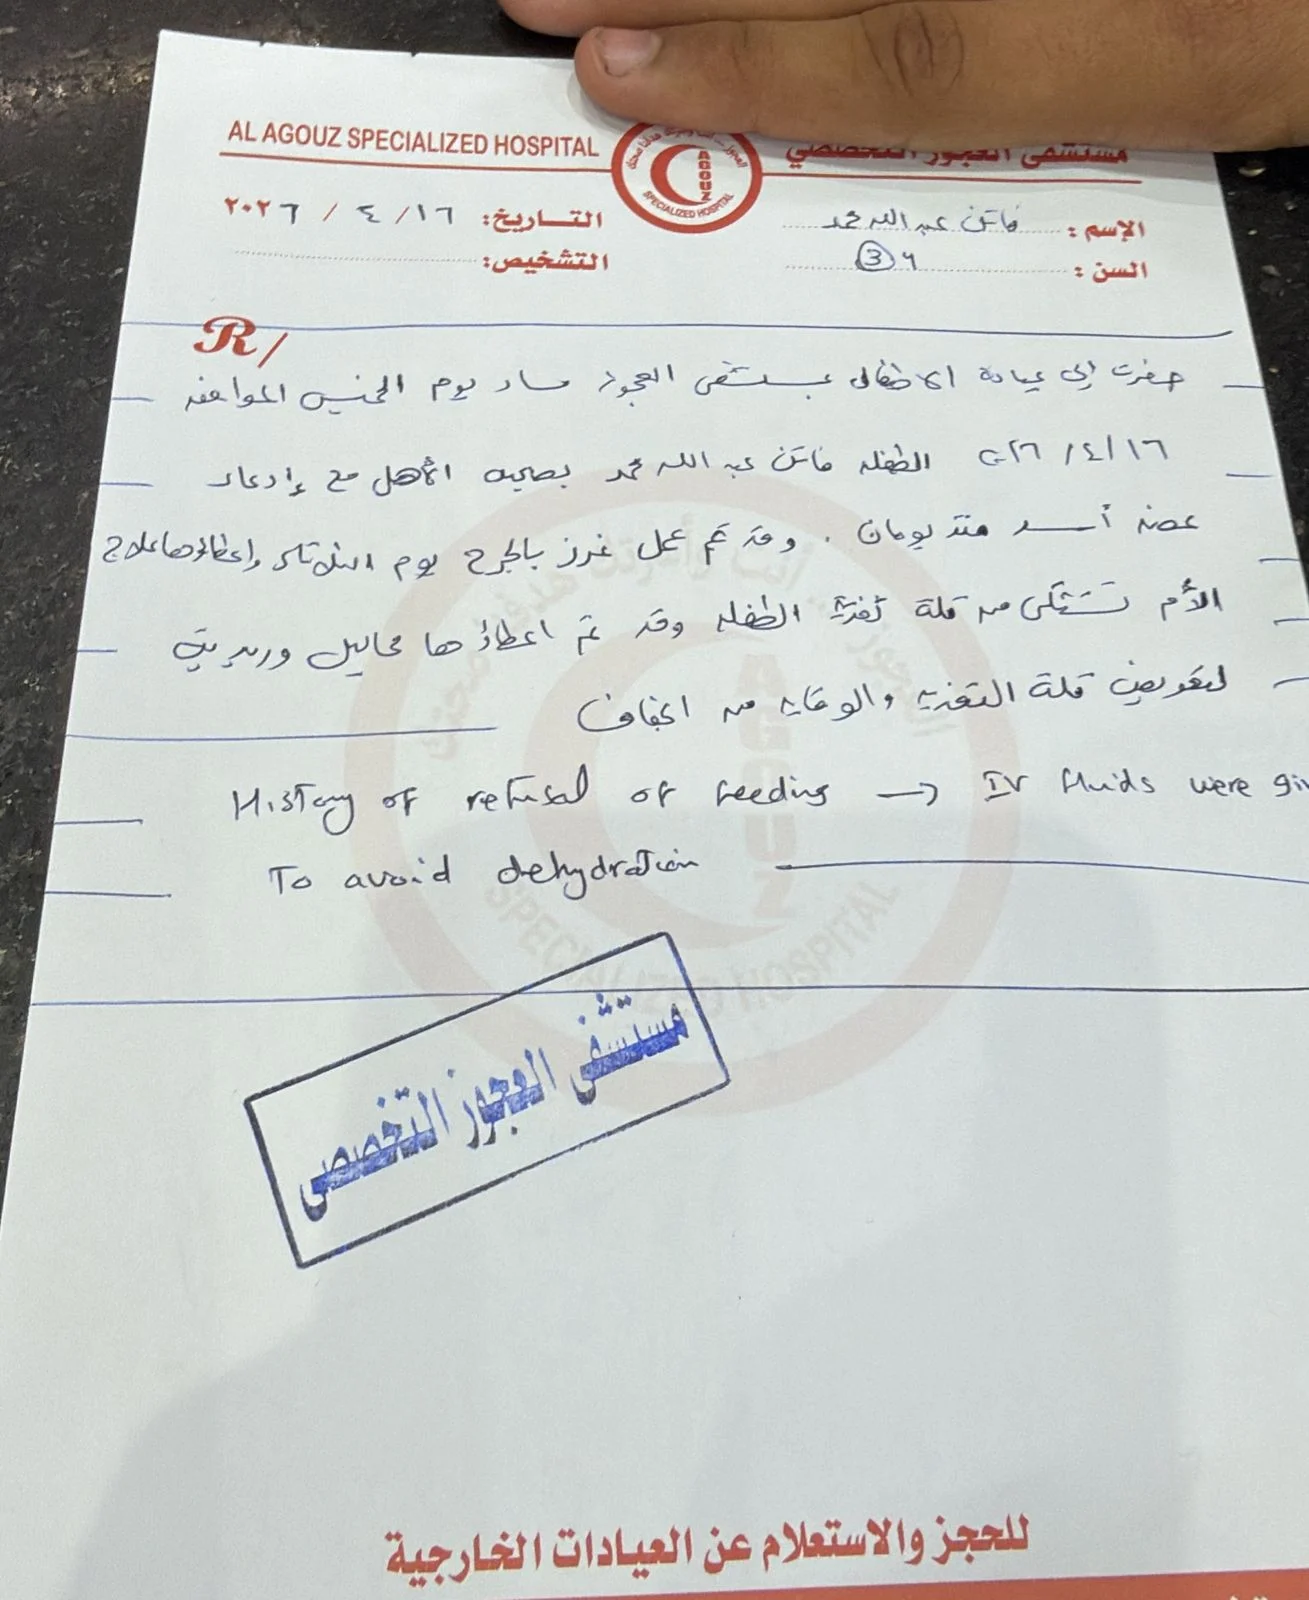 AL AGOUZ SPECIALIZED HOSPITAL
مستشفى العجوز التخصصي
AGOUZ
SPECIALIZED HOSPITAL
الإسم : فاتن عبد الله محمد
التـاريخ: ١٦ / ٤ / ٢٠٢٦
السن : 3
التشخيص:
R/
حضرت إلى عيادة الاطفال بمستشفى العجوز مساء يوم الخميس الموافق
١٦/ ٤/ ٢٠٢٦ الطفله فاتن عبد الله محمد بصحبه الأهل مع إدعاء
عضه أسد منذ يومان . وقد تم عمل غرز بالجرح يوم الثلاثاء وإعطاؤها علاج
الأم تشتكى من قلة تغذية الطفله وقد تم اعطاؤها محاليل وريدية
لتعويض قلة التغذيه والوقايه من الجفاف
History of refusal of feeding → IV fluids were
To avoid dehydration
AGOUZ
SPECIALIZED HOSPITAL
مستشفى العجوز التخصصى
للحجز والاستعلام عن العيادات الخارجية